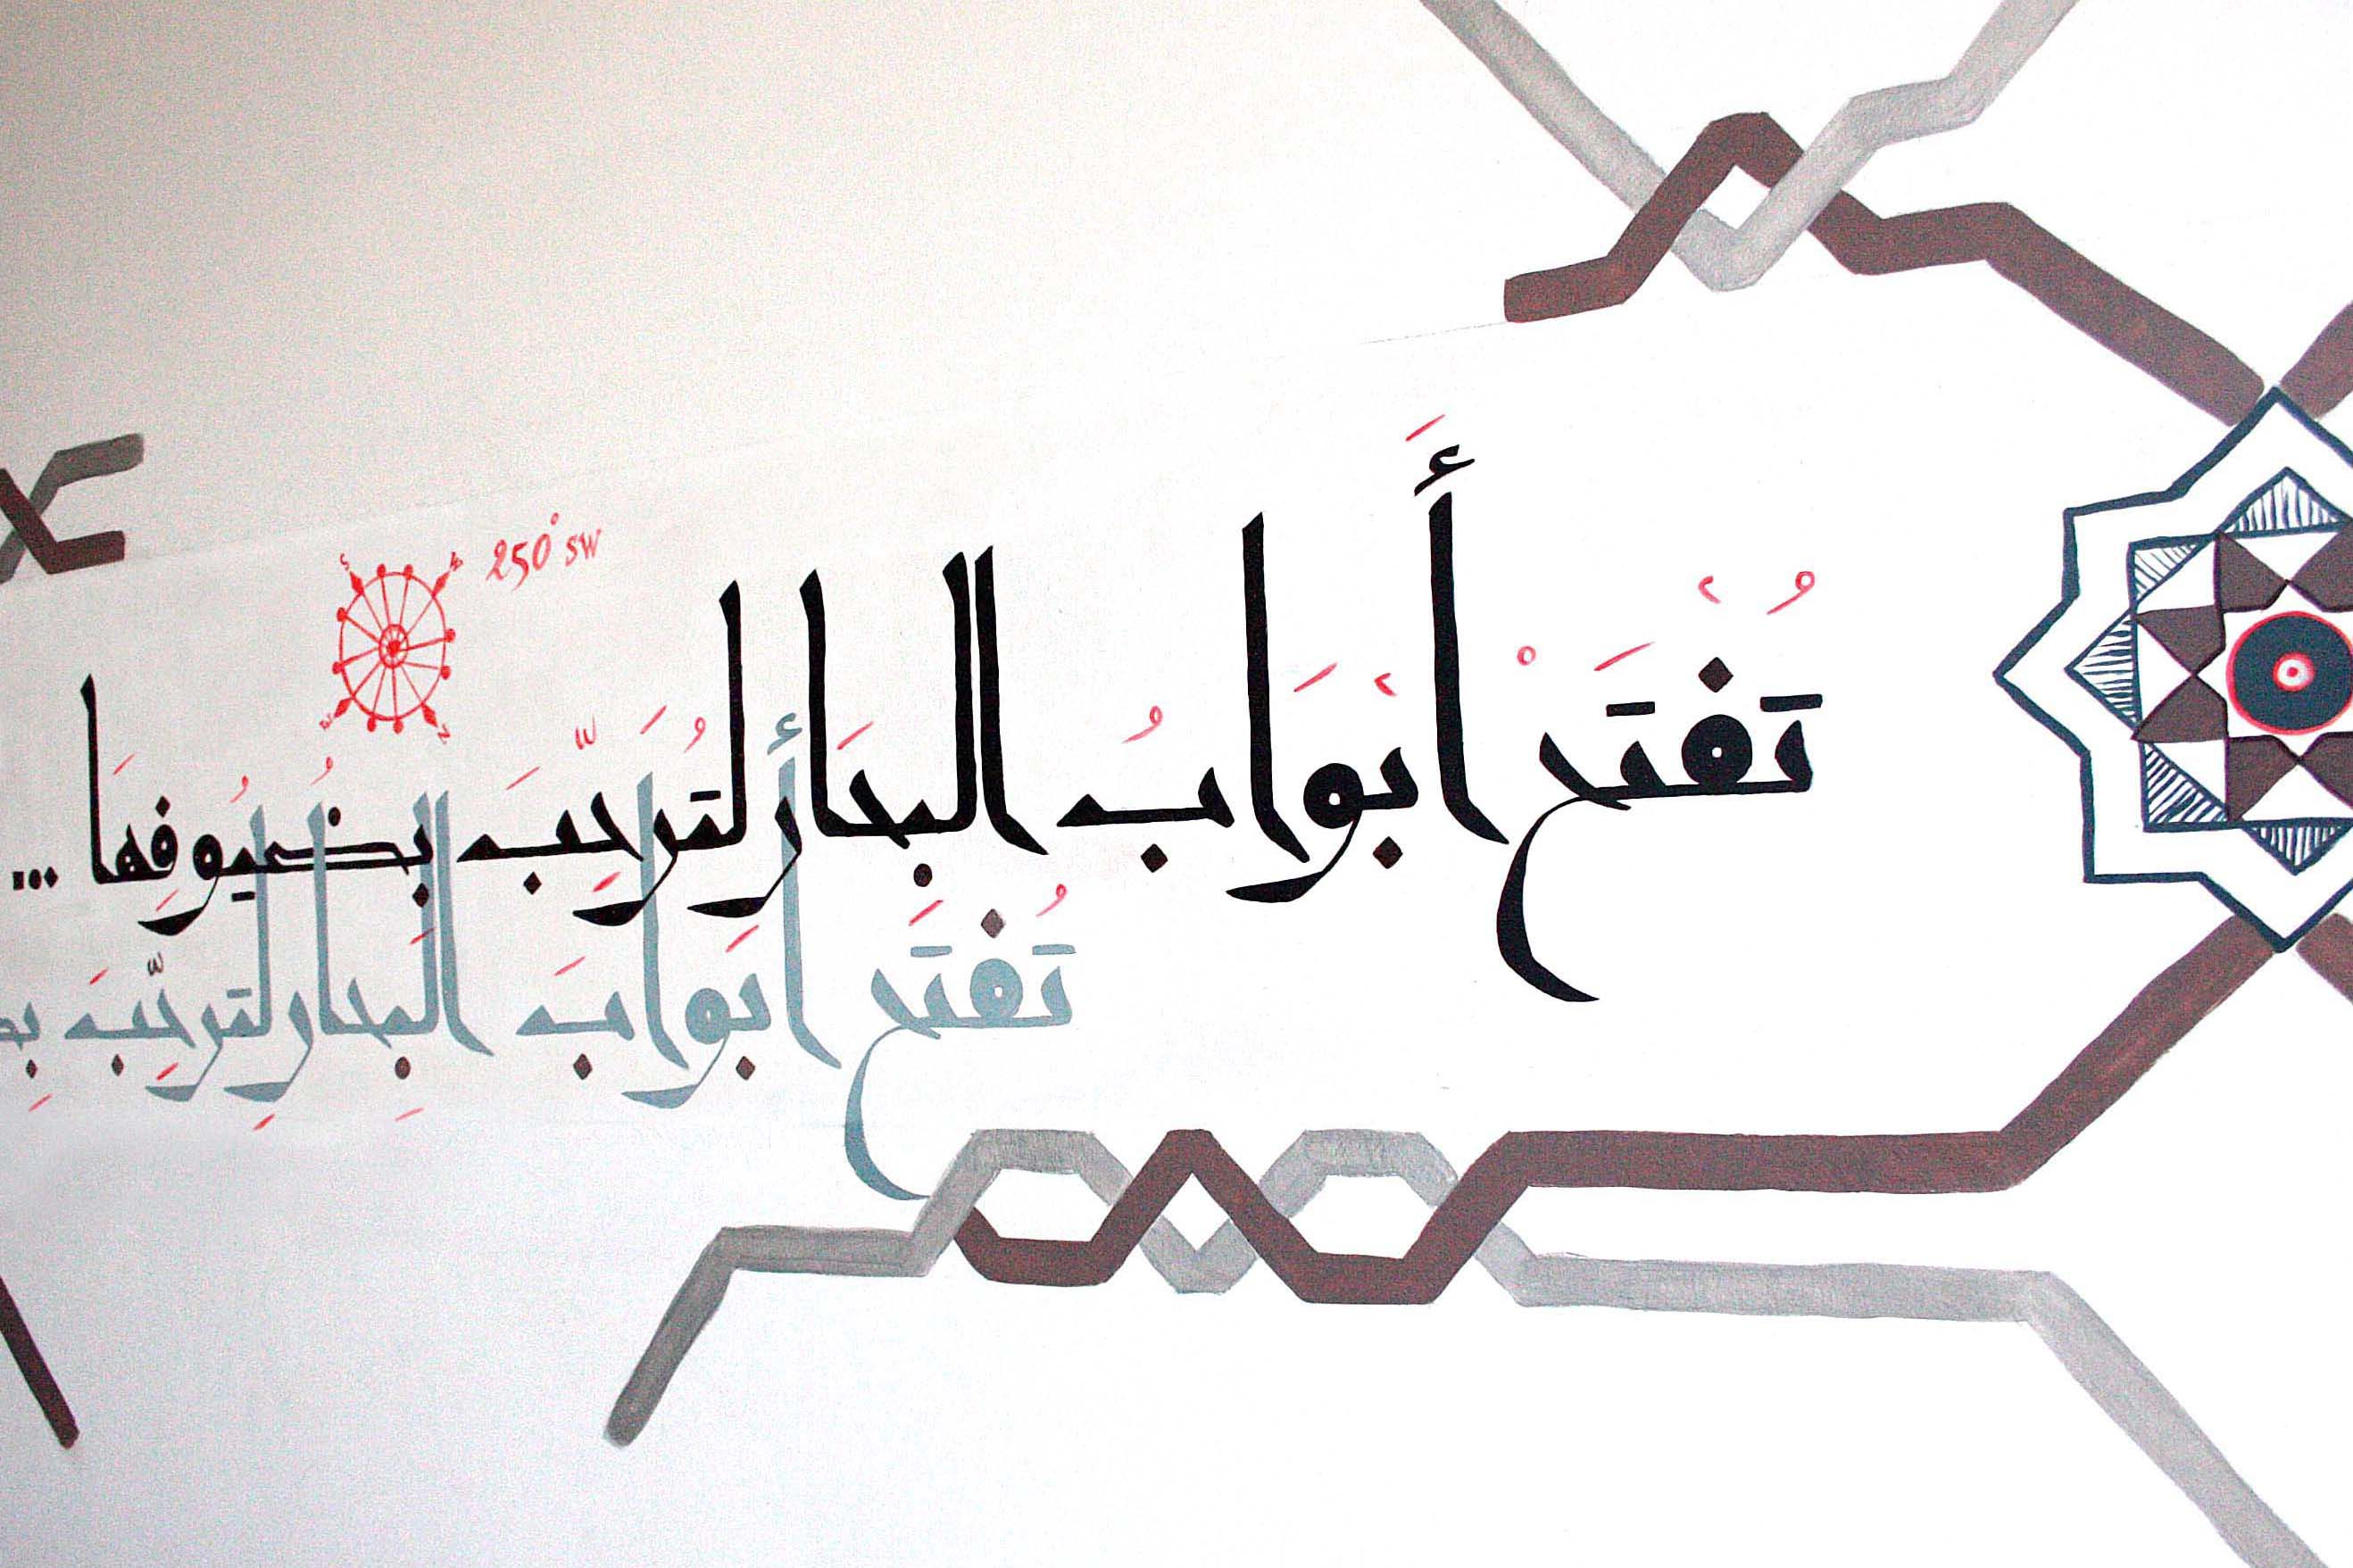 250° SW
تُفْتَحْ أَبْوَابُ البِحَار لتُرَحِّبَ بضُيُوفِهَا ...
تُفتَح أبوَابَ البِحارِ لتَرحِّبَ بِض